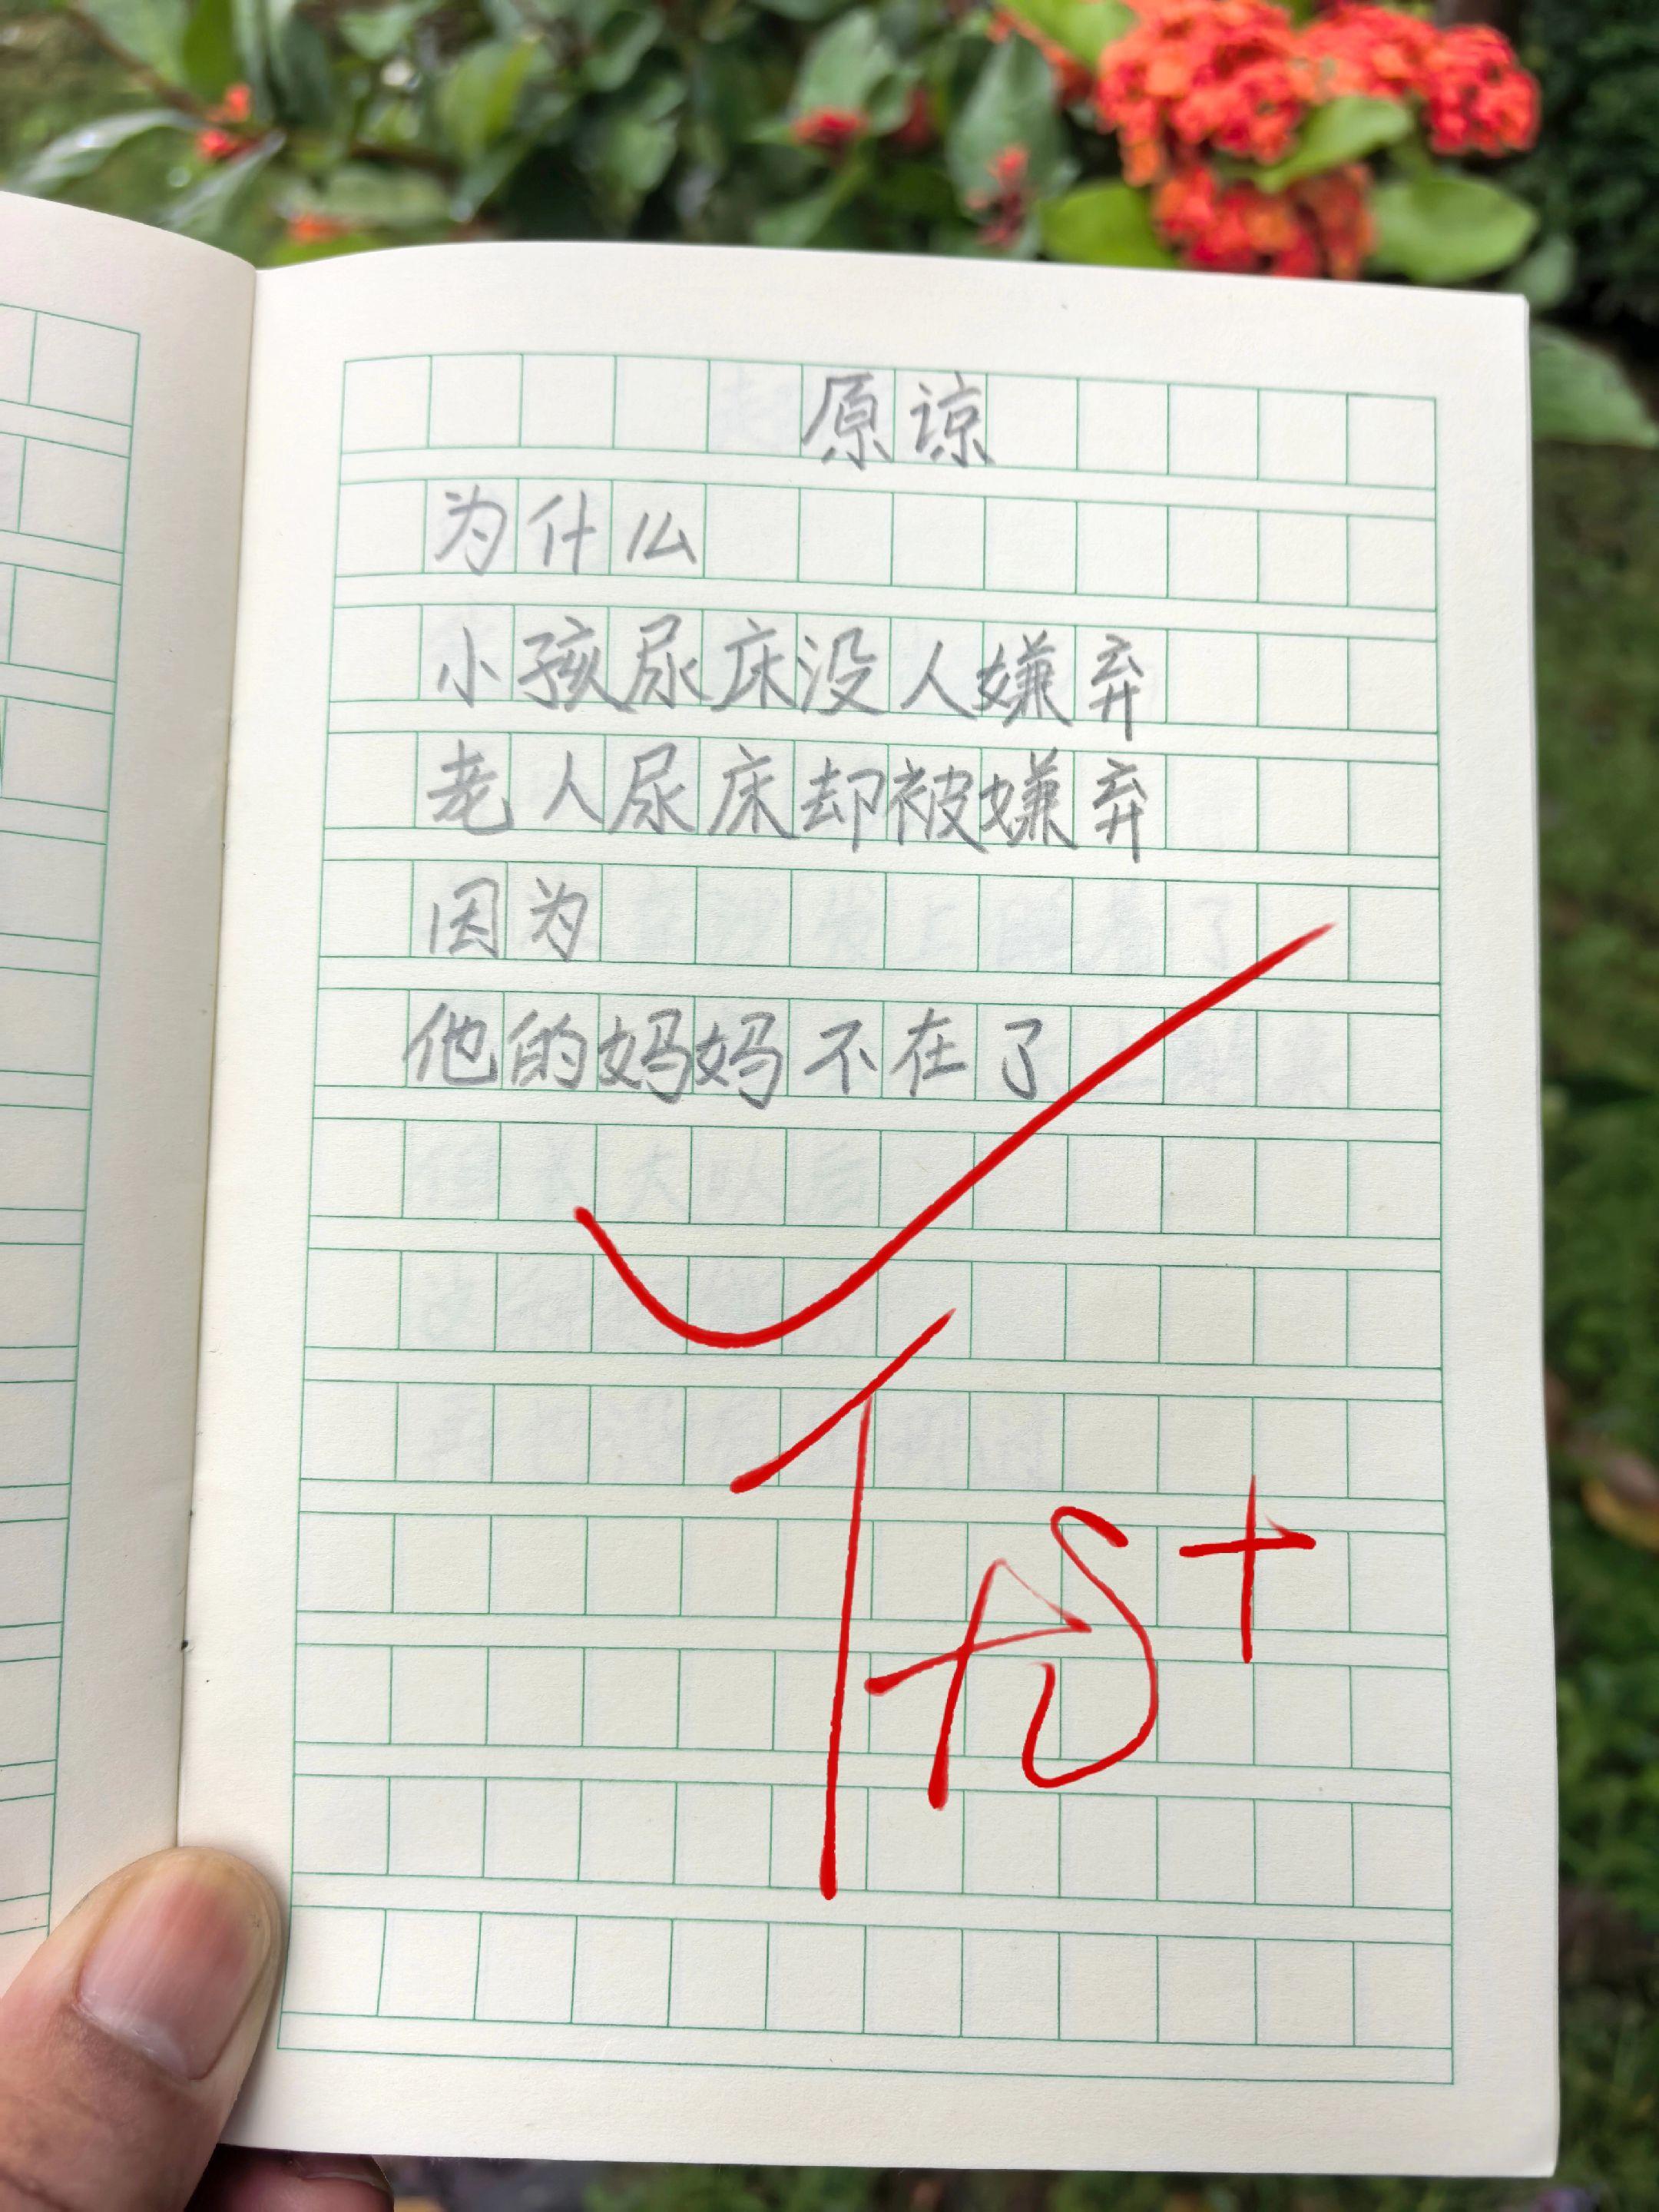 原谅
为什么
小孩尿床没人嫌弃
老人尿床却被嫌弃
因为
他的妈妈不在了
优+